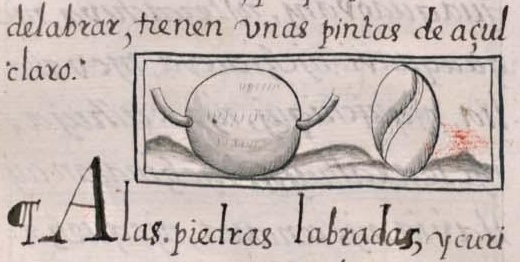 delabrar, tienen vnas pintas de açul
claro.
¶ A las piedras labradas, y curi